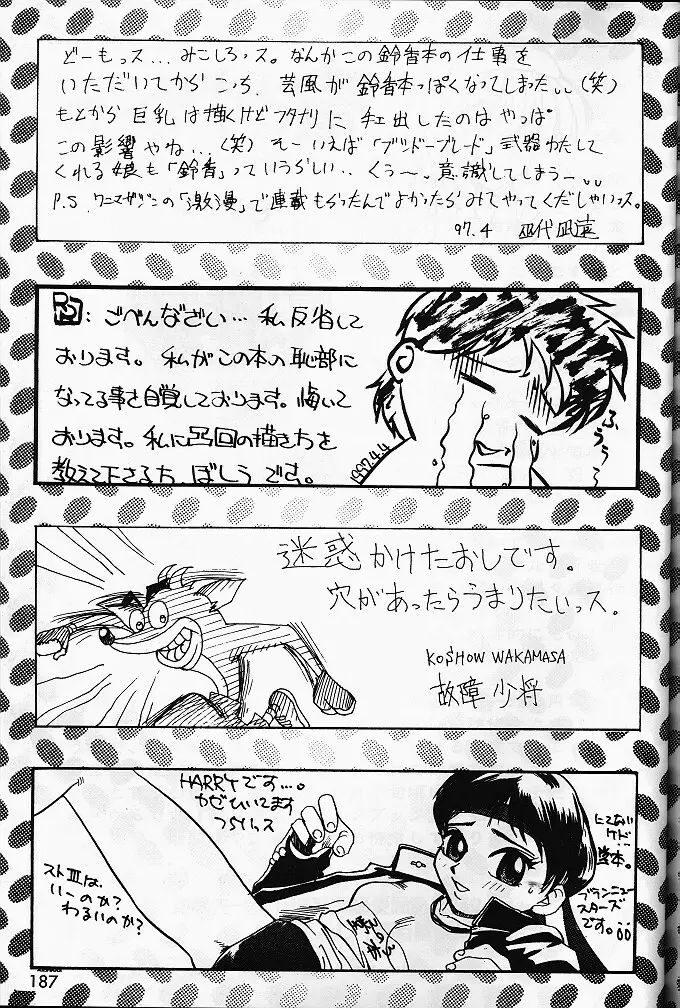 どーもっス…みこしろっス。なんかこの鈴香本の仕事を
いただいてからこっち、芸風が鈴香本っぽくなってしまった。。(笑)
もとから巨乳は描くけどフタナリに手出したのはやっぱ
この影響やね…(笑) そーいえば「ブシドーブレード」武器わたして
くれる娘も「鈴香」っていうらしい.. くぅ〜、意識してしまうー。。
P.S. ワニマガジンの「激漫」で連載もらったんでよかったらみてやってくだしゃいっス。
97.4
: ごべんなざい…私反省して
おります。私がこの本の恥部に
なってる事を自覚しております。悔いて
おります。私に凸凹の描き方を
教えて下さる方、ぼしうです。
ふぅぅ〜
1997.4.4
迷惑かけたおしです。
穴があったらうまりたいっス。
KOSHOW WAKAMASA
故障少将
HARRYです…。
かぜひいてます
つらいっス
ストⅢは、
いくのか?
わるいのか?
にてない
ケド
本。
ブランニュー
スターズ
です。
187